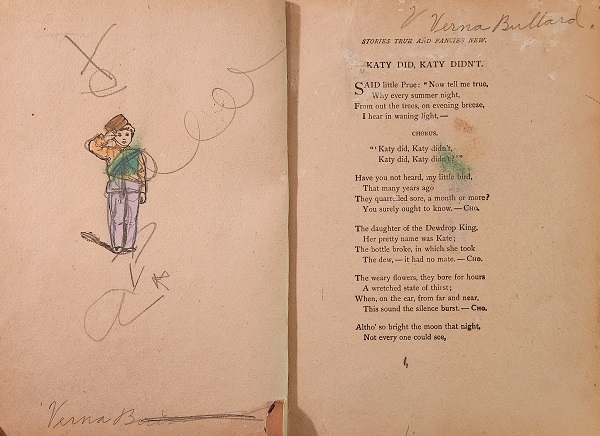 Verna
Verna Bullard.
STORIES TRUE AND FANCIES NEW.
KATY DID, KATY DIDN'T.
SAID little Prue: "Now tell me true,
Why every summer night,
From out the trees, on evening breeze,
I hear in waning light,—
CHORUS.
"'Katy did, Katy didn't,
Katy did, Katy didn't?'"
Have you not heard, my little bird,
That many years ago
They quarrelled sore, a month or more?
You surely ought to know.—CHO.
The daughter of the Dewdrop King,
Her pretty name was Kate;
The bottle broke, in which she took
The dew,—it had no mate.—CHO.
The weary flowers, they bore for hours
A wretched state of thirst;
When, on the ear, from far and near,
This sound the silence burst.—CHO.
Altho' so bright the moon that night,
Not every one could see,